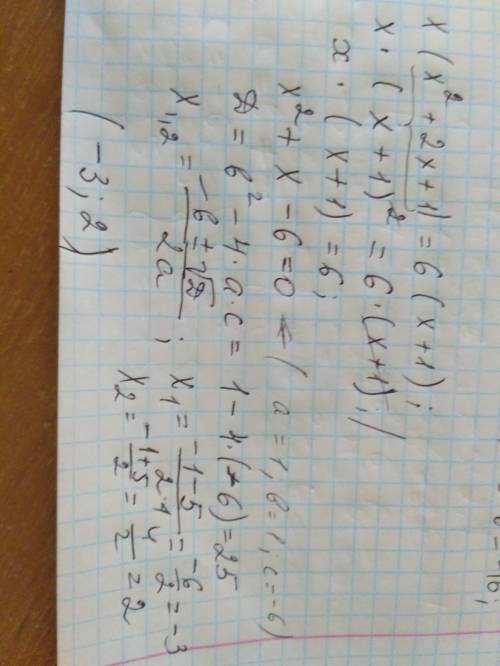 x(x² + 2x + 1) = 6(x+1);
x · (x+1)² = 6 · (x+1); /
x · (x+1) = 6;
x² + x - 6 = 0 ← (a = 1, b = 1; c = -6)
D = b² - 4 · a · c = 1 - 4 · (-6) = 25
x₁,₂ = (-b ± √D)/(2a) ; x₁ = (-1-5)/(2·1) = -6/2 = -3
x₂ = (-1+5)/2 = 4/2 = 2
(-3; 2)